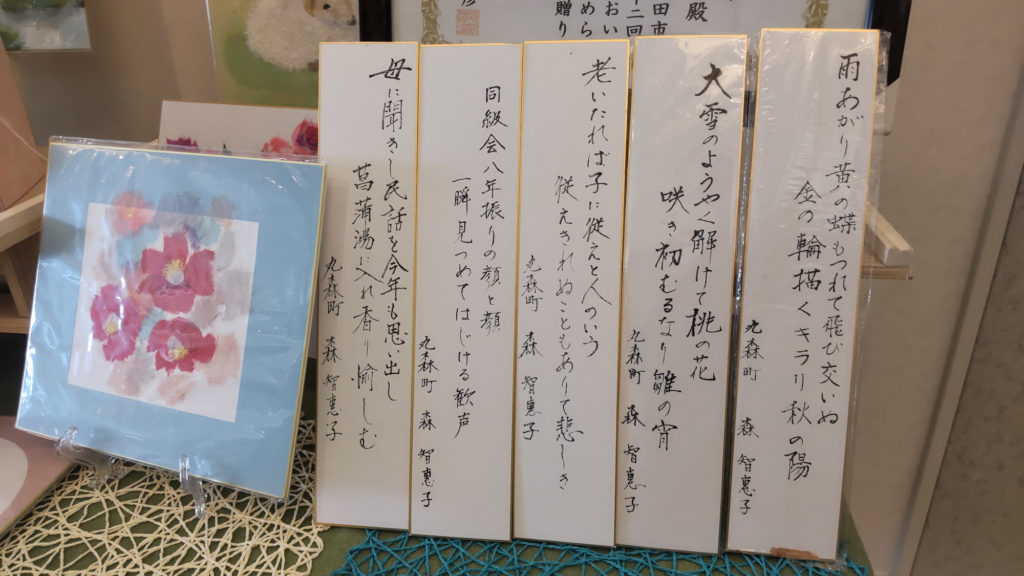 雨あがり黄の蝶もつれて飛び交いぬ
金の輪描くキラリ秋の陽
丸森町 森 智惠子
大雪のようやく解けて桃の花
咲き初むるなり雛の宵
丸森町 森 智惠子
老いたれば子に従えと人のいう
従えきれぬこともありて悲しき
丸森町 森 智惠子
同級会八年振りの顔と顔
一瞬見つめてはじける歓声
丸森町 森 智惠子
母に聞きし民話を今年も思い出し
菖蒲湯に入れ香り愉しむ
丸森町 森 智惠子
殿
田市
十二回
おい
められ
贈り